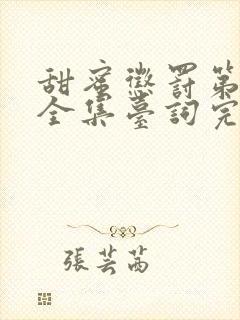 甜蜜懲罰第
全集臺詞完
張芸茜